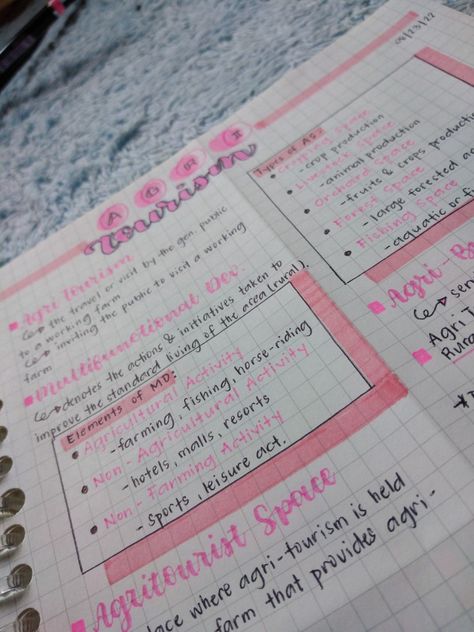 06/23/22
AGRI
Tourism
Agri Tourism
the travel or visit by the gen. public
to a working farm
inviting the public to visit a working
farm
Multifunctional Dev.
denotes the actions & initiatives taken to
improve the standard living of the area (rural).
Elements of MD:
• Agricultural Activity
- farming, fishing, horse-riding
• Non-Agricultural Activity
- hotels, malls, resorts
• Non-Farming Activity
- sports, leisure act.
Agritourist Space
place where agri-tourism is held
farm that provides agri-
Types of AS:
• Cropping Space
- crop production
• Livestock Space
- animal production
• Orchard Space
- fruits & crops production
• Forest Space
- large forested
• Fishing Space
- aquatic or
Agri-B
Agri